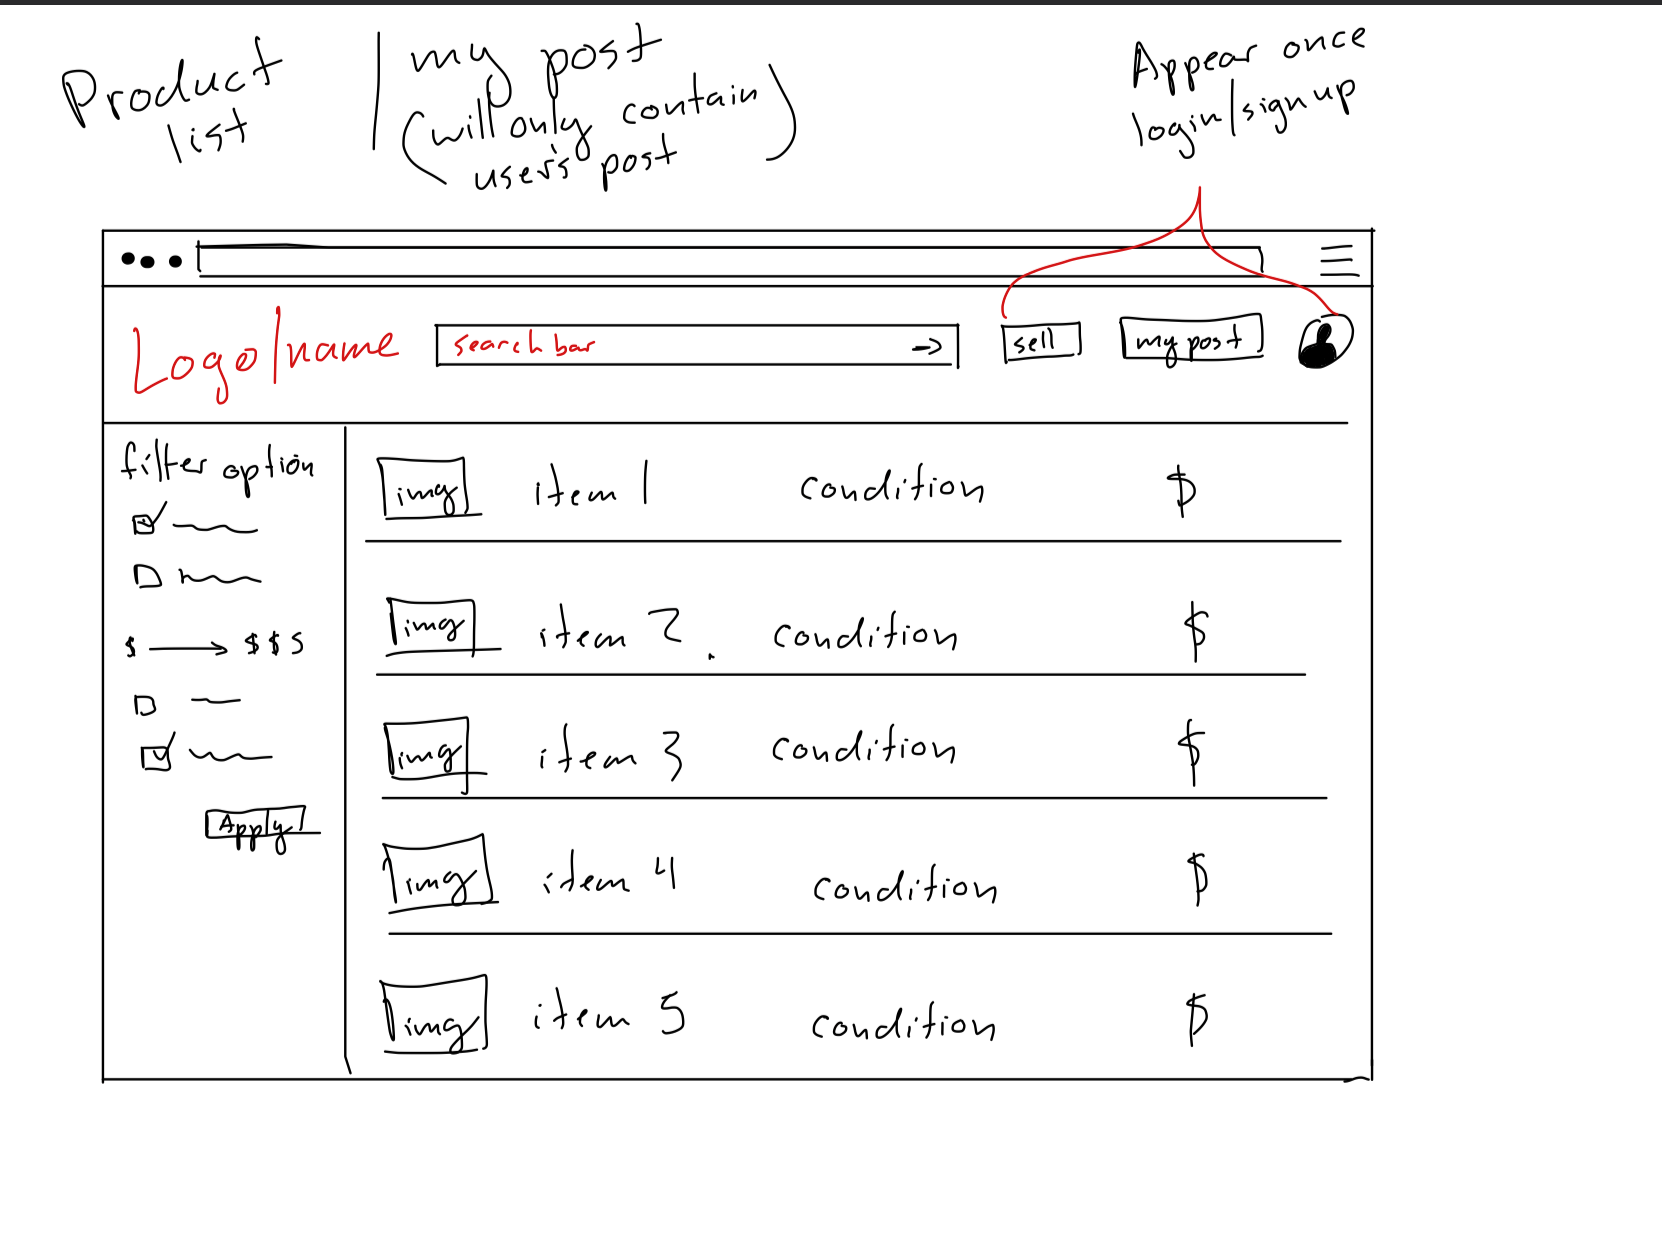 Product
list
my post
(will only contain
user's post)
Appear once
login/signup
Logo/name
search bar
sell
my post
filter option
$ $ $ $
Apply
img item 1 condition $
img item 2. condition $
img item 3 condition $
img item 4 condition $
img item 5 condition $